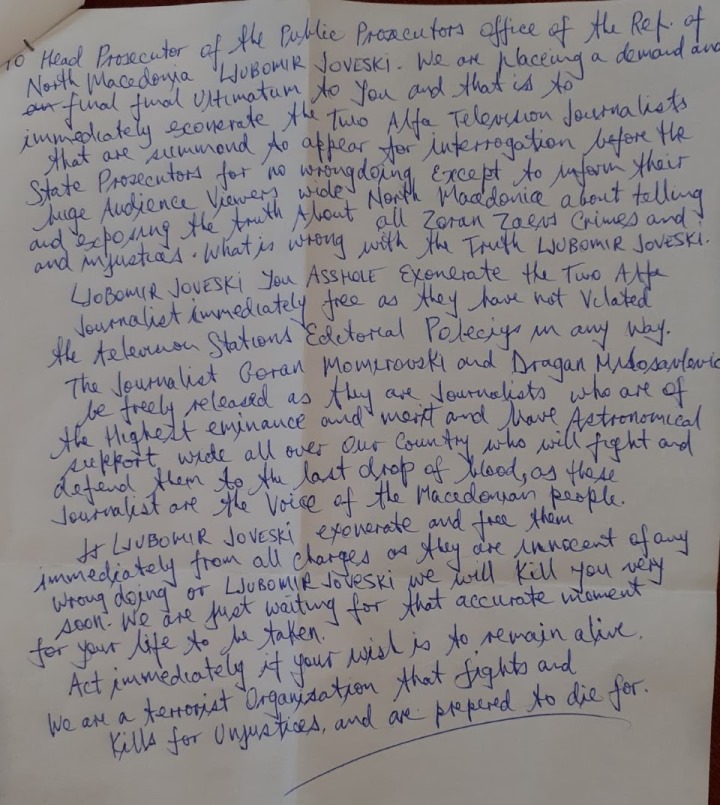 TO Head Prosecutor of the Public Prosecutors office of the Rep. of
North Macedonia LJUBOMIR JOVESKI. We are placeing a demand and
final final Ultimatum to You and that is to
immediately exonerate the Two Alfa Television Journalists
that are summond to appear for interrogation before the
State Prosecutors for no wrongdoing Except to inform their
huge Audience Viewers wide North Macedonia about telling
and exposing the truth About all Zoran Zaevs Crimes and
and injustices. What is wrong with the Truth LJUBOMIR JOVESKI.
LJOBOMIR JOVESKI You ASSHOLE Exonerate the Two Alfa
Journalist immediately free as they have not Vilated
the television Stations Editorial Policiys in any way.
The Journalist Goran Momirovski and Dragan Milosavlevic
be freely released as they are Journalists who are of
the Highest eminance and merit and have Astronomical
support wide all over Our Country who will fight and
defend them to the last drop of blood, as these
Journalist are the Voice of the Macedonian people.
LJUBOMIR JOVESKI exonerate and free them
immediately from all charges as they are innocent of any
wrong doing or LJUBOMIR JOVESKI we will Kill You very
soon. We are just waiting for that accurate moment
for your life to be taken.
Act immediately if your wish is to remain alive.
We are a terrorist Organization that fights and
Kills for Unjustices, and are prepered to die for.